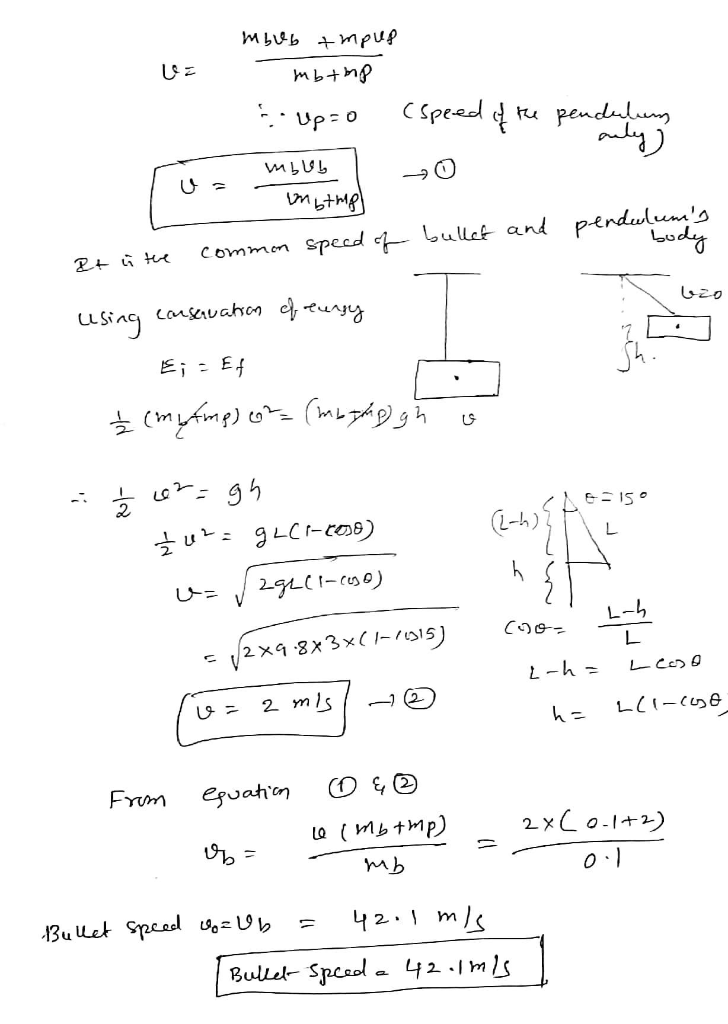 mbvb + mpvp
v = mb+mp
∵ vp=0 (speed of the pendulum only)
v = mbvb / mb+mp → ①
It is the common speed of bullet and pendulum's body
using conservation of energy
v=0
Ei = Ef
h.
½ (mb+mp) v² = (mb+mp) gh v
∴ ½ v² = gh
θ=15°
½ v² = gL(1-cosθ)
(L-h) L
v = √2gL(1-cosθ)
h
= √2×9.8×3×(1-cos15)
cosθ = L-h / L
L-h = L cosθ
v = 2 m/s → ②
h = L(1-cosθ)
From equation ① & ②
vb = v (mb+mp) / mb = 2×(0.1+2) / 0.1
Bullet speed v0=vb = 42.1 m/s
Bullet speed = 42.1m/s